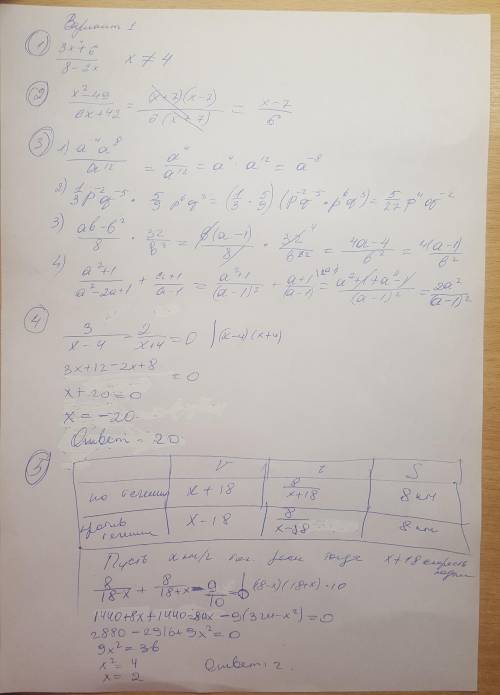 Вариант 1
① (3x+6)/(8-2x) x ≠ 4
② (x²-49)/(6x+42) = (x+7)(x-7)/6(x+7) = (x-7)/6
③ 1) a⁴a⁸/a¹² = a⁴/a¹² = a⁴ · a¹² = a⁻⁸
2) 1/3 p⁻² q⁻⁵ · 5/9 p⁶ q³ = (1/3 · 5/9) (p⁻² q⁻⁵ · p⁶ q³) = 5/27 p⁴ q⁻²
3) (ab-b²)/8 · 32/b² = b(a-1)/8 · 32 4/b² = (4a-4)/b² = 4(a-1)/b²
4) (a²+1)/(a²-2a+1) + (a+1)/(a-1) = (a²+1)/(a-1)² + (a+1)/(a-1) = (a²+1+a²-1)/(a-1)² = 2a²/(a-1)²
④
3/(x-4) - 2/(x+4) = 0 | (x-4)(x+4)
3x+12-2x+8 = 0
x+20=0
x = -20
Ответ - 20
⑤ V t S
по течению x+18 8/(x+18) 8 км
против течения x-18 8 км
Пусть x км/ч реки тогда x+18 скорость лодки
8/(18-x) + 8/(18+x) - 9/10 = 0 | (18-x)(18+x)·10
1440+8x+1440-80x-9(324-x²)=0
2880-2916+9x²=0
9x²=36
x²=4
x=2 Ответ: 2